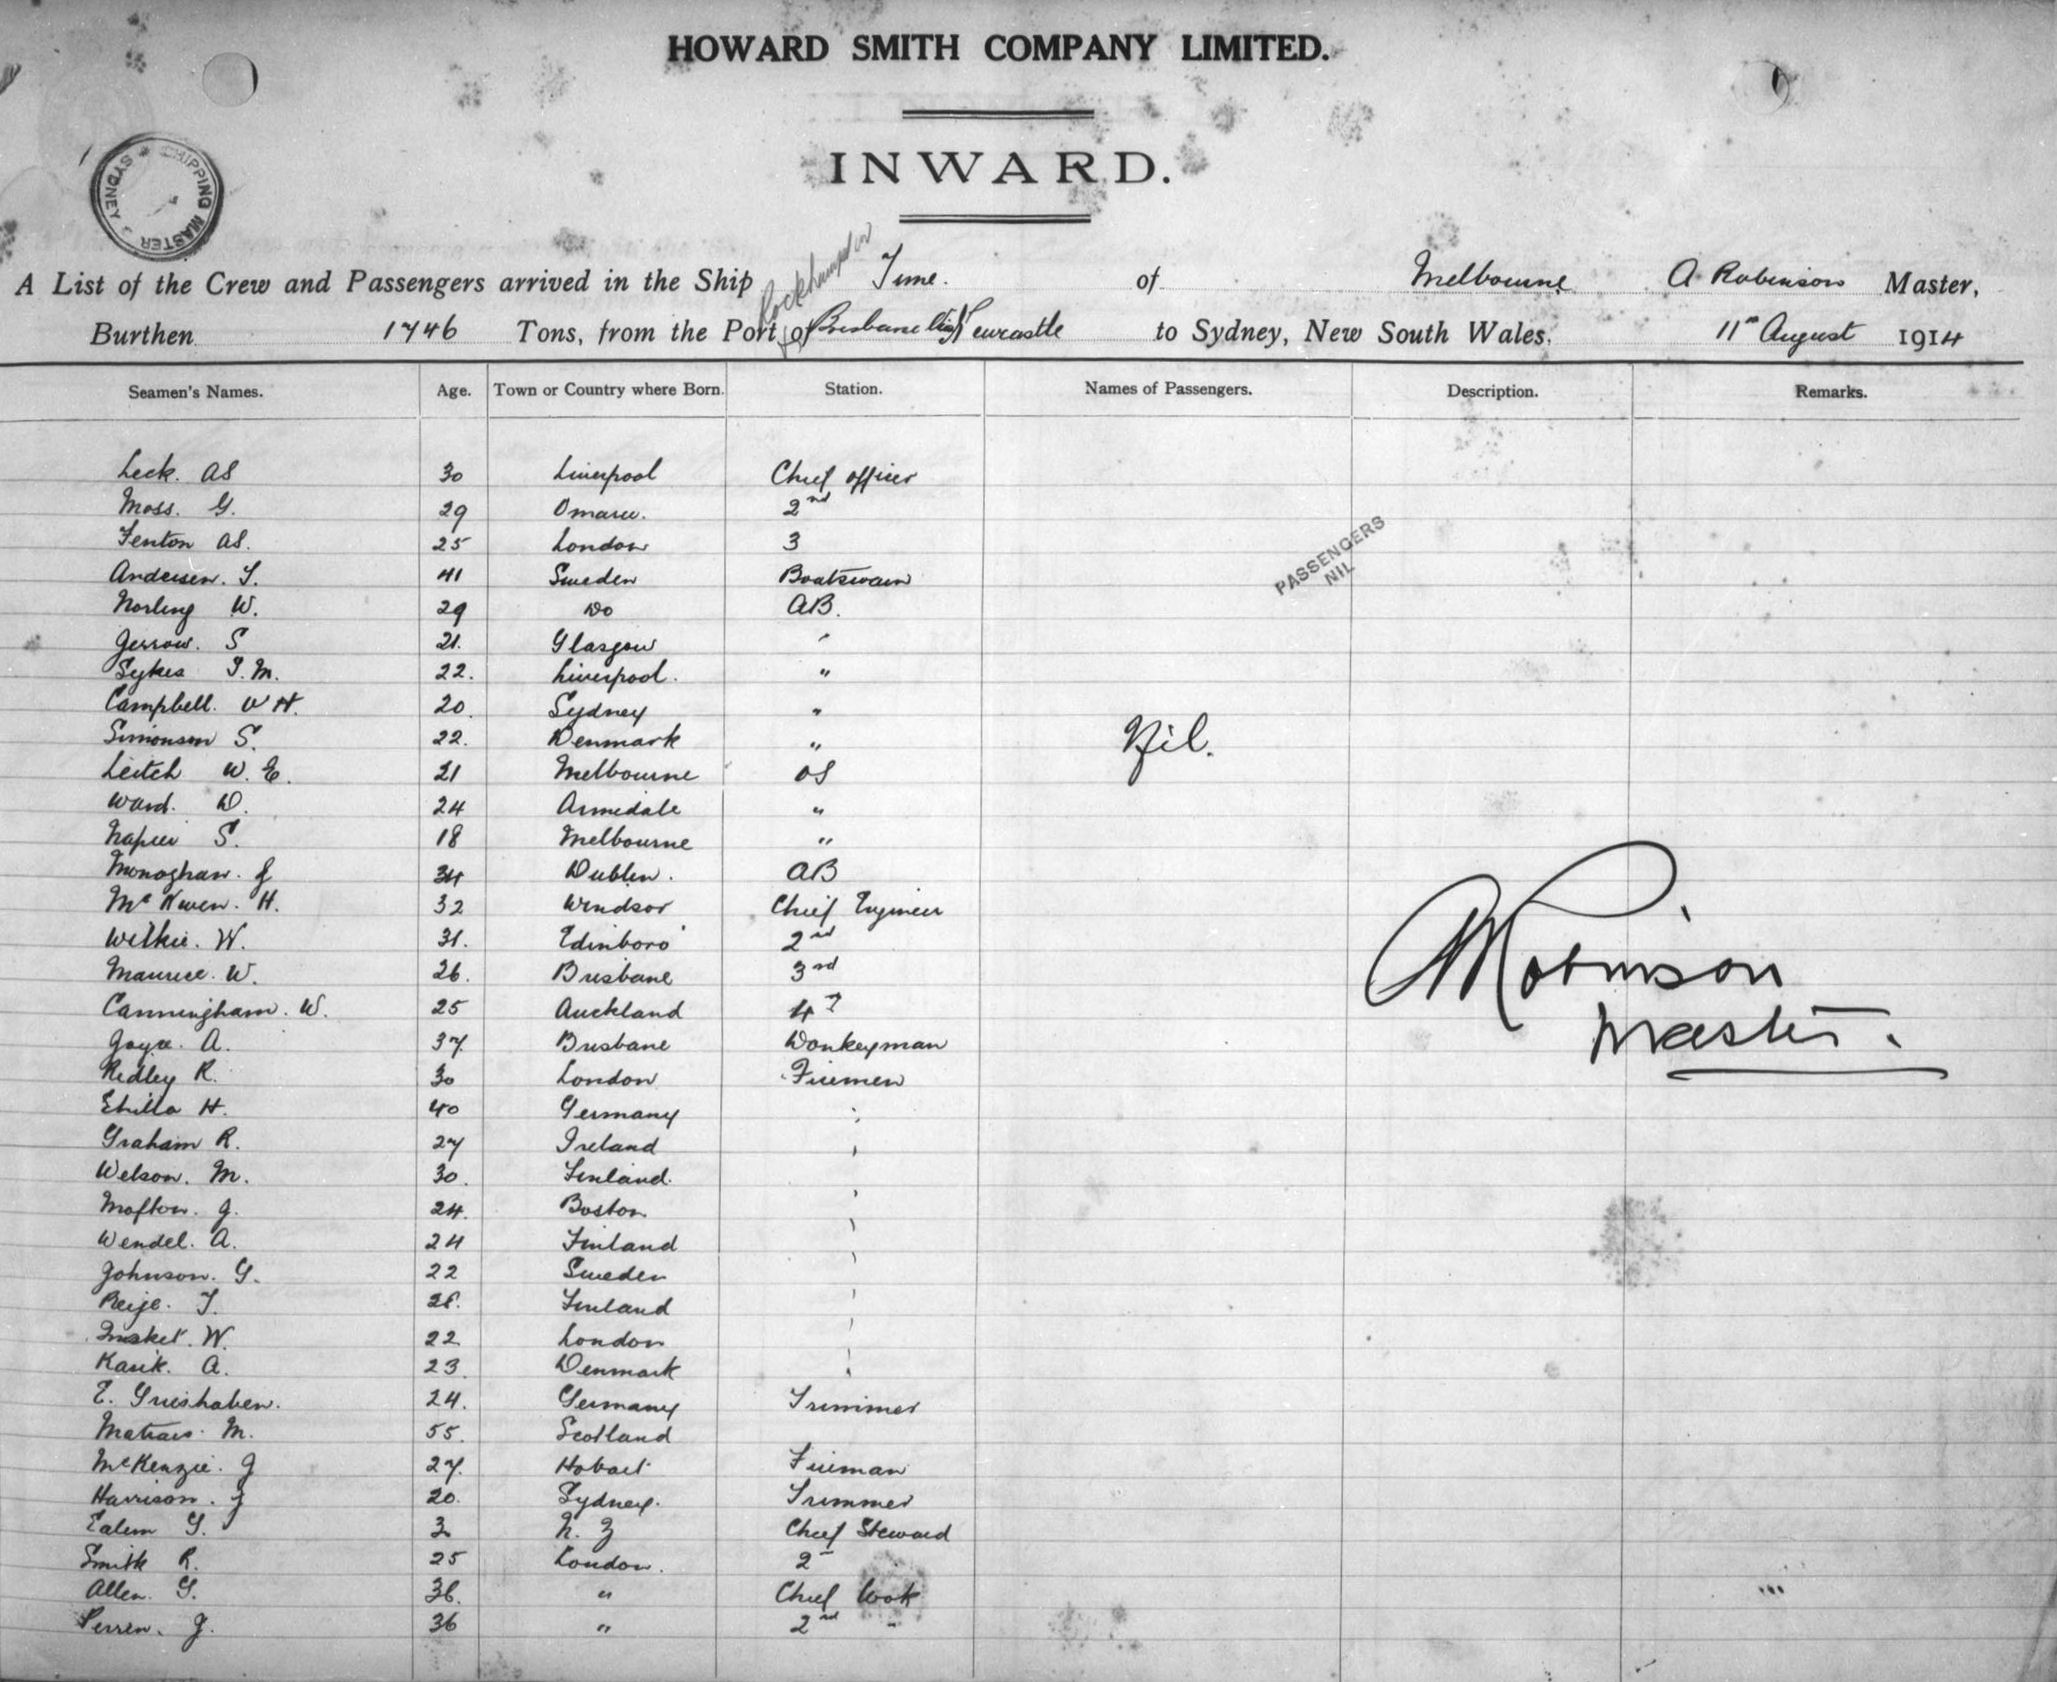 HOWARD SMITH COMPANY LIMITED.
INWARD.
SHIPPING MASTER * SYDNEY *
Rockhampton
A List of the Crew and Passengers arrived in the Ship Time. of Melbourne A Robinson Master,
Burthen 1746 Tons, from the Port of Brisbane via Newcastle to Sydney, New South Wales. 11th August 1914
Seamen's Names. Age. Town or Country where Born. Station. Names of Passengers. Description. Remarks.
Leck. AS 30 Liverpool Chief Officer
Moss. G. 29 Omaru. 2nd
Fenton AS. 25 London 3
PASSENGERS NIL
Andersen. 41 Sweden Boatswain
Norling W. 29 Do AB.
Jerrow. S 21. Glasgow "
Sykes M. 22. Liverpool. "
Campbell. W H. 20. Sydney "
Simonson S. 22. Denmark "
Nil.
Leitch W. E. 21 Melbourne OS
Ward. D. 24 Armidale "
Napier S. 18 Melbourne "
Monoghan. J 34 Dublin. AB
McKwen. H. 32 Windsor Chief Engineer
Wilkie. W. 31. Edinboro' 2nd
Maurice. W. 26. Brisbane 3rd
A Robinson
Master.
Canningham. W. 25 Auckland 4th
Joyce. A. 37. Brisbane Donkeyman
Ridley R. 30 London Firemen
H. 40 Germany "
Graham R. 27 Ireland "
Welson. M. 30. Finland. "
J. 24. Boston "
Wendel. A. 24 Finland "
Johnson. G. 22 Sweden "
Finland "
W. 22 London "
Karik. A. 23 Denmark "
E. Grieshaben. 24. Germany Trimmer
M. 55. Scotland
McKenzie. J 27. Hobart Fireman
Harrison. J 20. Sydney. Trimmer
N. Z Chief Steward
Smith R. 25 London. 2
Allen. G. 36. " Chief Cook
Perren. J. 36 " 2nd "